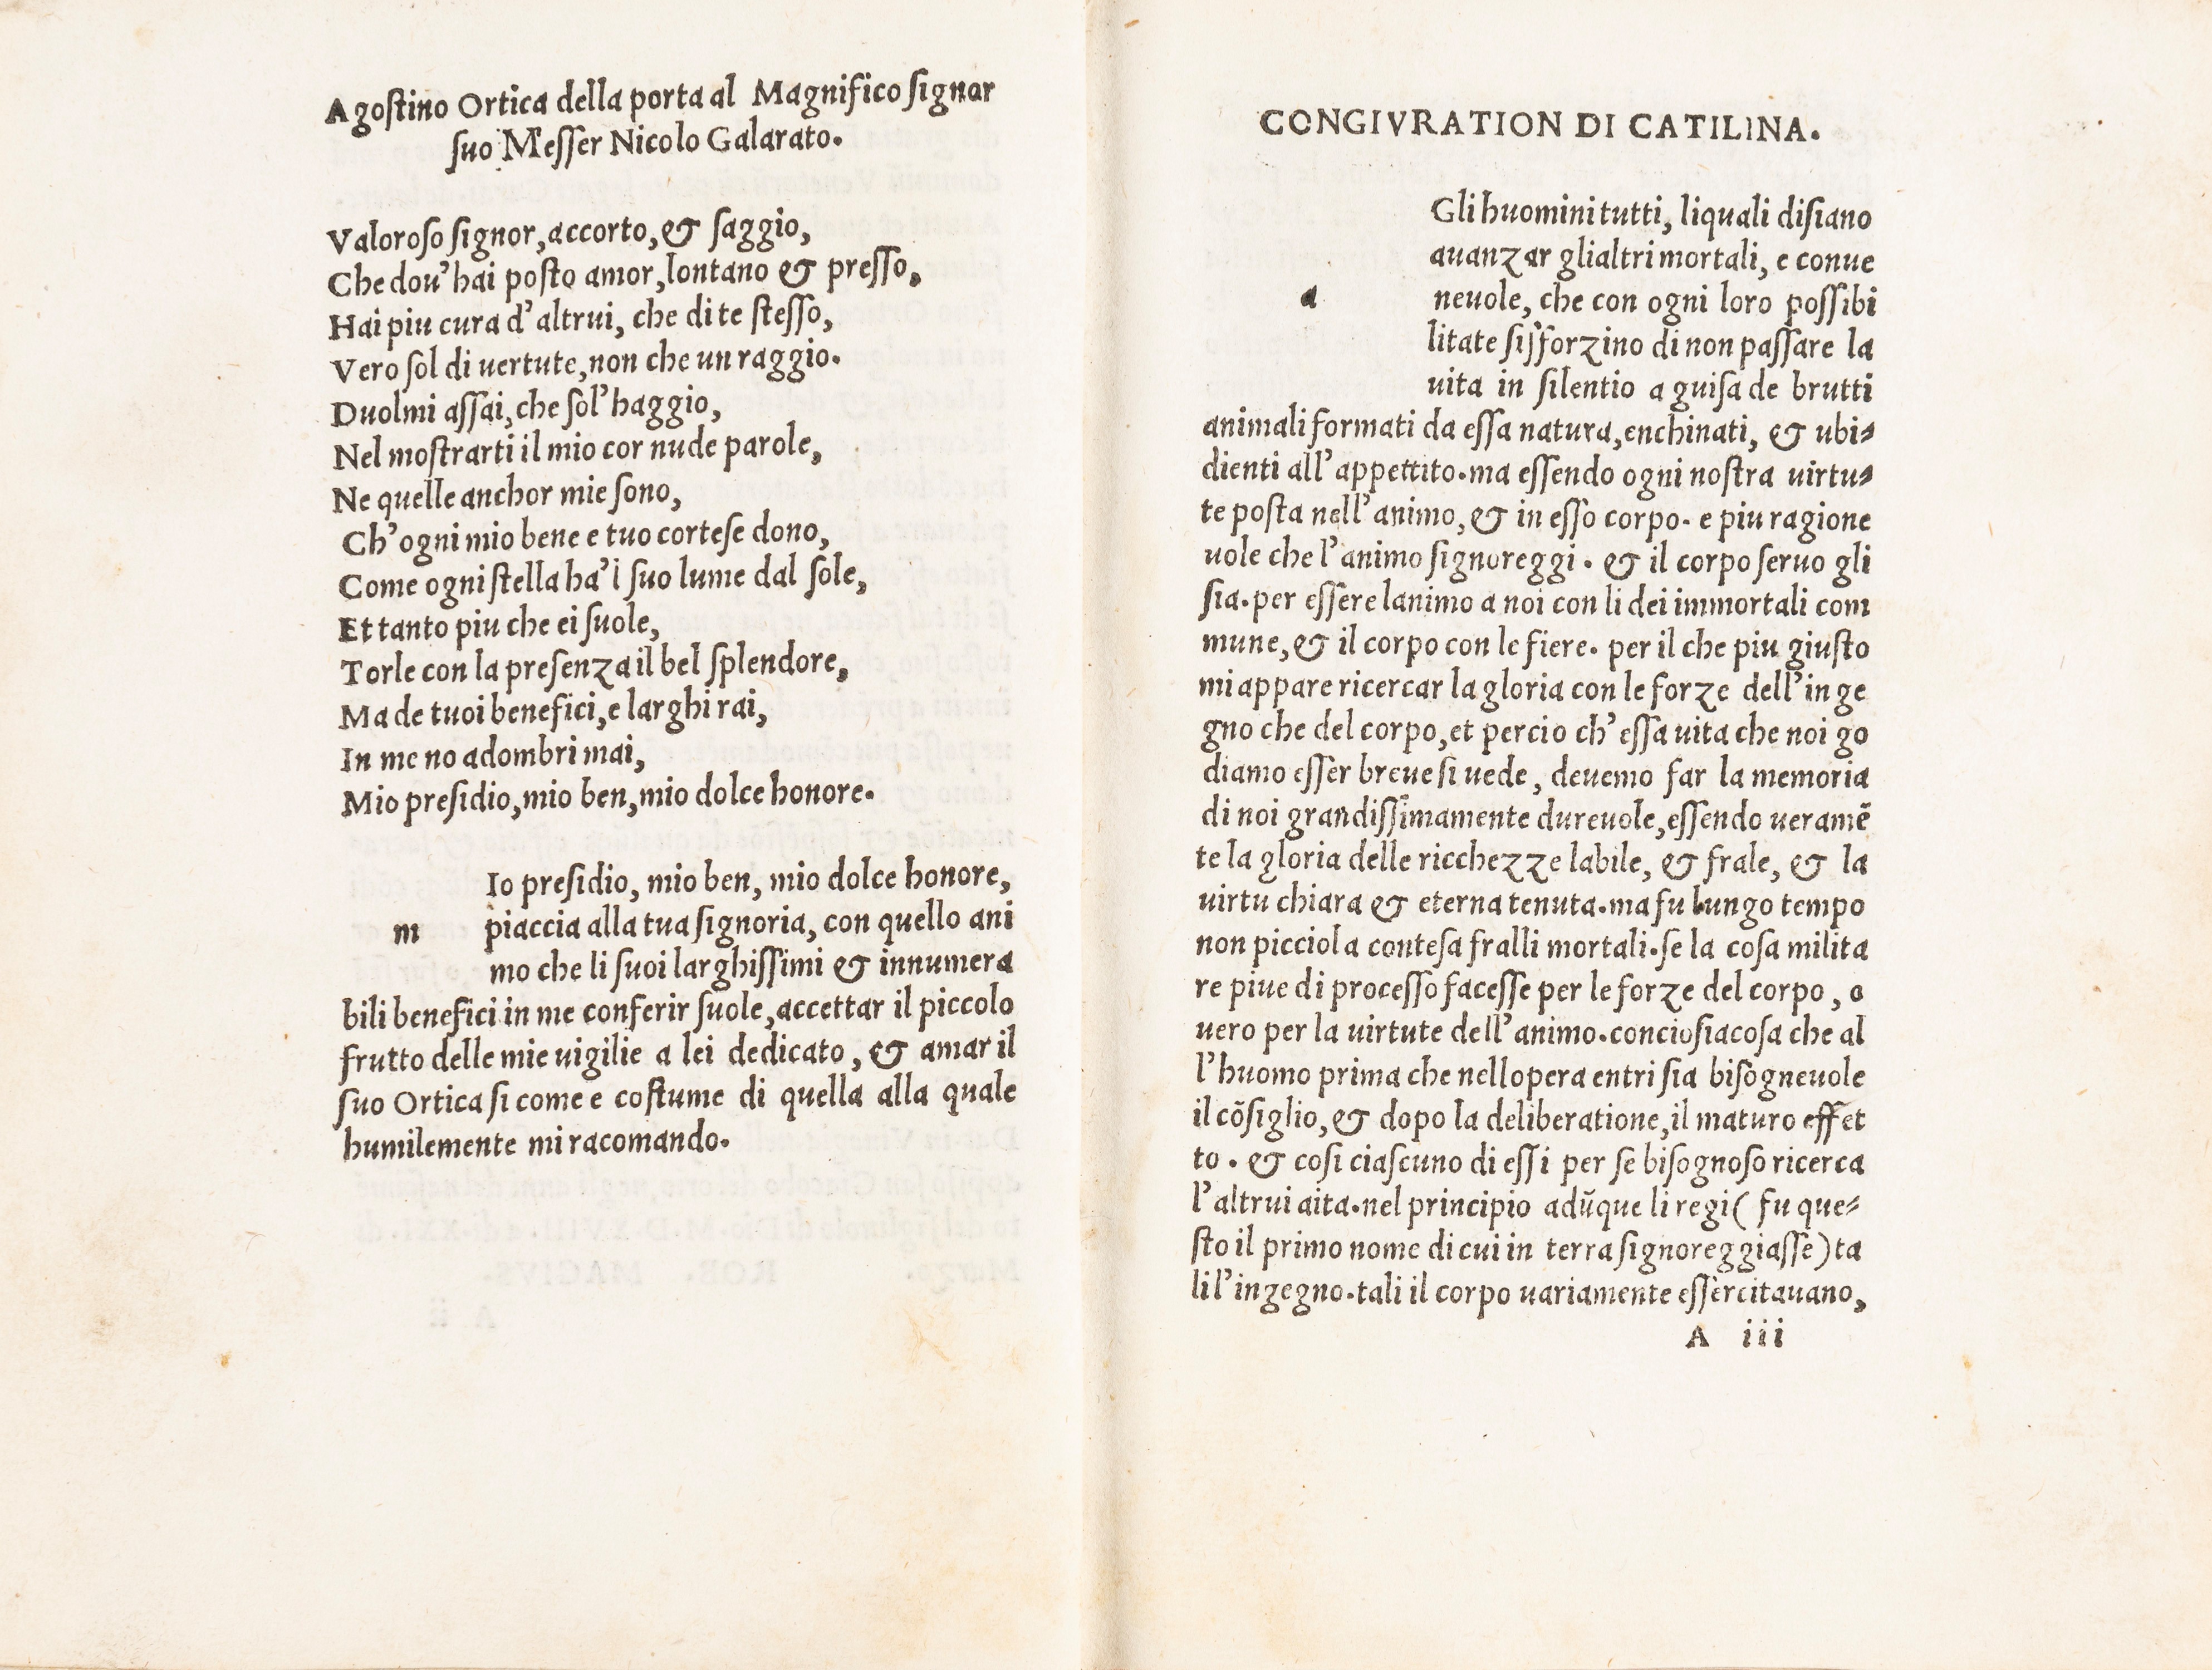 Agostino Ortica della porta al Magnifico signor
suo Messer Nicolo Galarato.
Valoroso signor, accorto, & saggio,
Che dou' hai posto amor, lontano & presso,
Hai piu cura d'altrui, che di te stesso,
Vero sol di uertute, non che un raggio.
Duolmi assai, che sol' haggio,
Nel mostrarti il mio cor nude parole,
Ne quelle anchor mie sono,
Ch' ogni mio bene e tuo cortese dono,
Come ogni stella ha'l suo lume dal sole,
Et tanto piu che ei suole,
Torle con la presenza il bel splendore,
Ma de tuoi benefici, e larghi rai,
In me no adombri mai,
Mio presidio, mio ben, mio dolce honore.
Io presidio, mio ben, mio dolce honore,
m piaccia alla tua signoria, con quello ani
mo che li suoi larghissimi & innumera
bili benefici in me conferir suole, accettar il piccolo
frutto delle mie uigilie a lei dedicato, & amar il
suo Ortica si come e costume di quella alla quale
humilemente mi racomando.
CONGIVRATION DI CATILINA.
Gli huomini tutti, liquali disiano
auanzar glialtri mortali, e conue
a neuole, che con ogni loro possibi
litate si sforzino di non passare la
uita in silentio a guisa de brutti
animali formati da essa natura, enchinati, & ubi-
dienti all' appettito. ma essendo ogni nostra uirtu-
te posta nell' animo, & in esso corpo. e piu ragione
uole che l'animo signoreggi. & il corpo seruo gli
sia. per essere lanimo a noi con li dei immortali com
mune, & il corpo con le fiere. per il che piu giusto
mi appare ricercar la gloria con le forze dell'inge
gno che del corpo, et percio ch' essa uita che noi go
diamo esser breue si uede, deuemo far la memoria
di noi grandissimamente dureuole, essendo ueramẽ
te la gloria delle ricchezze labile, & frale, & la
uirtu chiara & eterna tenuta. ma fu lungo tempo
non picciola contesa fralli mortali. se la cosa milita
re piue di processo facesse per le forze del corpo, o
uero per la uirtute dell' animo. conciosiacosa che al
l'huomo prima che nellopera entri sia bisogneuole
il cõsiglio, & dopo la deliberatione, il maturo effet
to. & cosi ciascuno di essi per se bisognoso ricerca
l'altrui aita. nel principio adũque li regi ( fu que-
sto il primo nome di cui in terra signoreggiasse) ta
li l'ingegno. tali il corpo uariamente essercitauano,
A iii